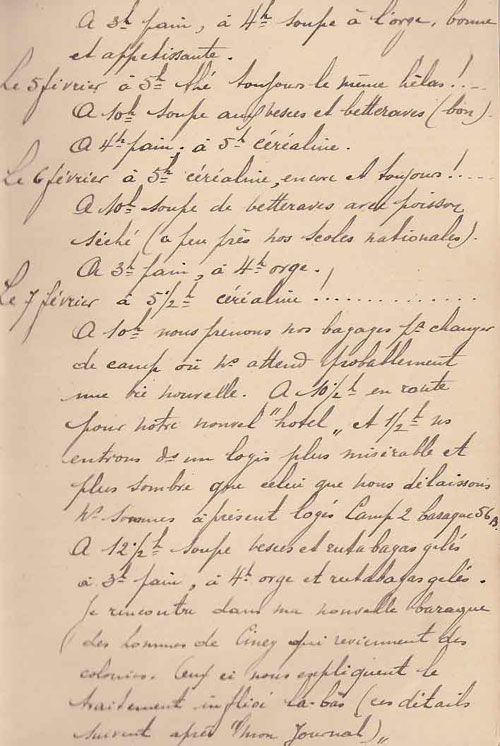 A 3h pain, à 4h soupe à l'orge, bonne
et appetissante.
Le 5 février à 5h thé toujours le même hélas!...
A 10h soupe aux vesces et betteraves (bon).
A 4h pain. à 5h céréaline.
Le 6 février à 5h céréaline, encore et toujours!....
A 10h soupe de betteraves avec poisson
séché (à peu près nos scoles nationales).
A 3h pain, à 4h orge.
Le 7 février à 5 1/2h céréaline!..............
A 10h nous prenons nos bagages pr changer
de camp où ns attend probablement
une vie nouvelle. A 10 1/2h en route
pour notre nouvel "hotel" et 1/2h ns
entrons ds un logis plus misérable et
plus sombre que celui que nous délaissons
Ns sommes à présent logés Camp 2 baraque 56 B.
A 12 1/2h soupe vesces et rutabagas gelés
à 3h pain, à 4h orge et rutabagas gelés.
Je rencontre dans ma nouvelle baraque
des hommes de Ciney qui reviennent des
colonies. Ceux ci nous expliquent le
traitement infligé là-bas (ces détails
suivent après "mon Journal")